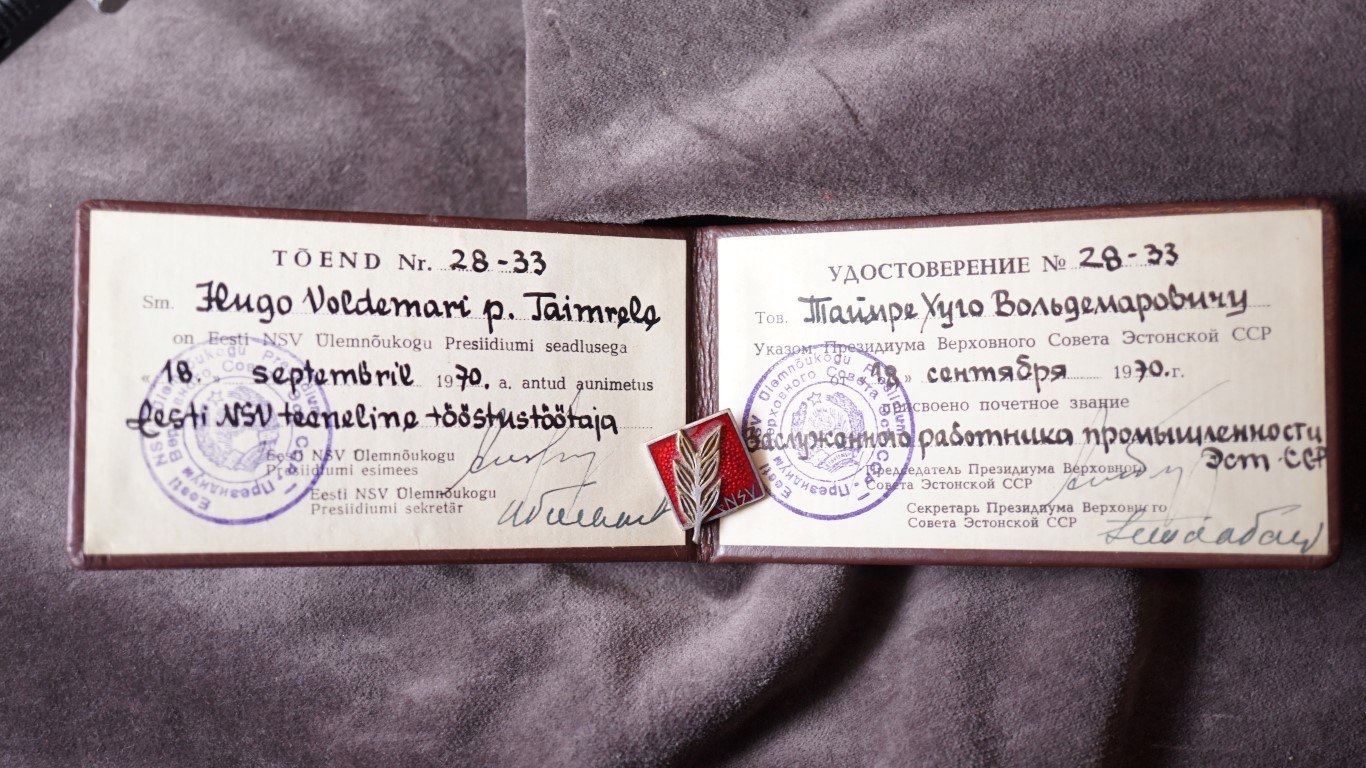 TÕEND Nr. 28-33
Sm. Hugo Voldemari p. Taimrele
on Eesti NSV Ülemnõukogu Presiidiumi seadlusega
"18." septembril 1970. a. antud aunimetus
Eesti NSV teeneline tööstustöötaja
Eesti NSV Ülemnõukogu
Presiidiumi esimees
Eesti NSV Ülemnõukogu
Presiidiumi sekretär
УДОСТОВЕРЕНИЕ № 28-33
Тов. Таймре Хуго Вольдемаровичу
Указом Президиума Верховного Совета Эстонской ССР
от «18» сентября 1970. г.
присвоено почетное звание
Заслуженного работника промышленности
Эст. ССР
Председатель Президиума Верховного
Совета Эстонской ССР
Секретарь Президиума Верховного
Совета Эстонской ССР
ENSV
Eesti NSV Ülemnõukogu Presiidium
Президиум Верховного Совета Эст. ССР
Eesti NSV Ülemnõukogu Presiidium
Президиум Верховного Совета Эст. ССР